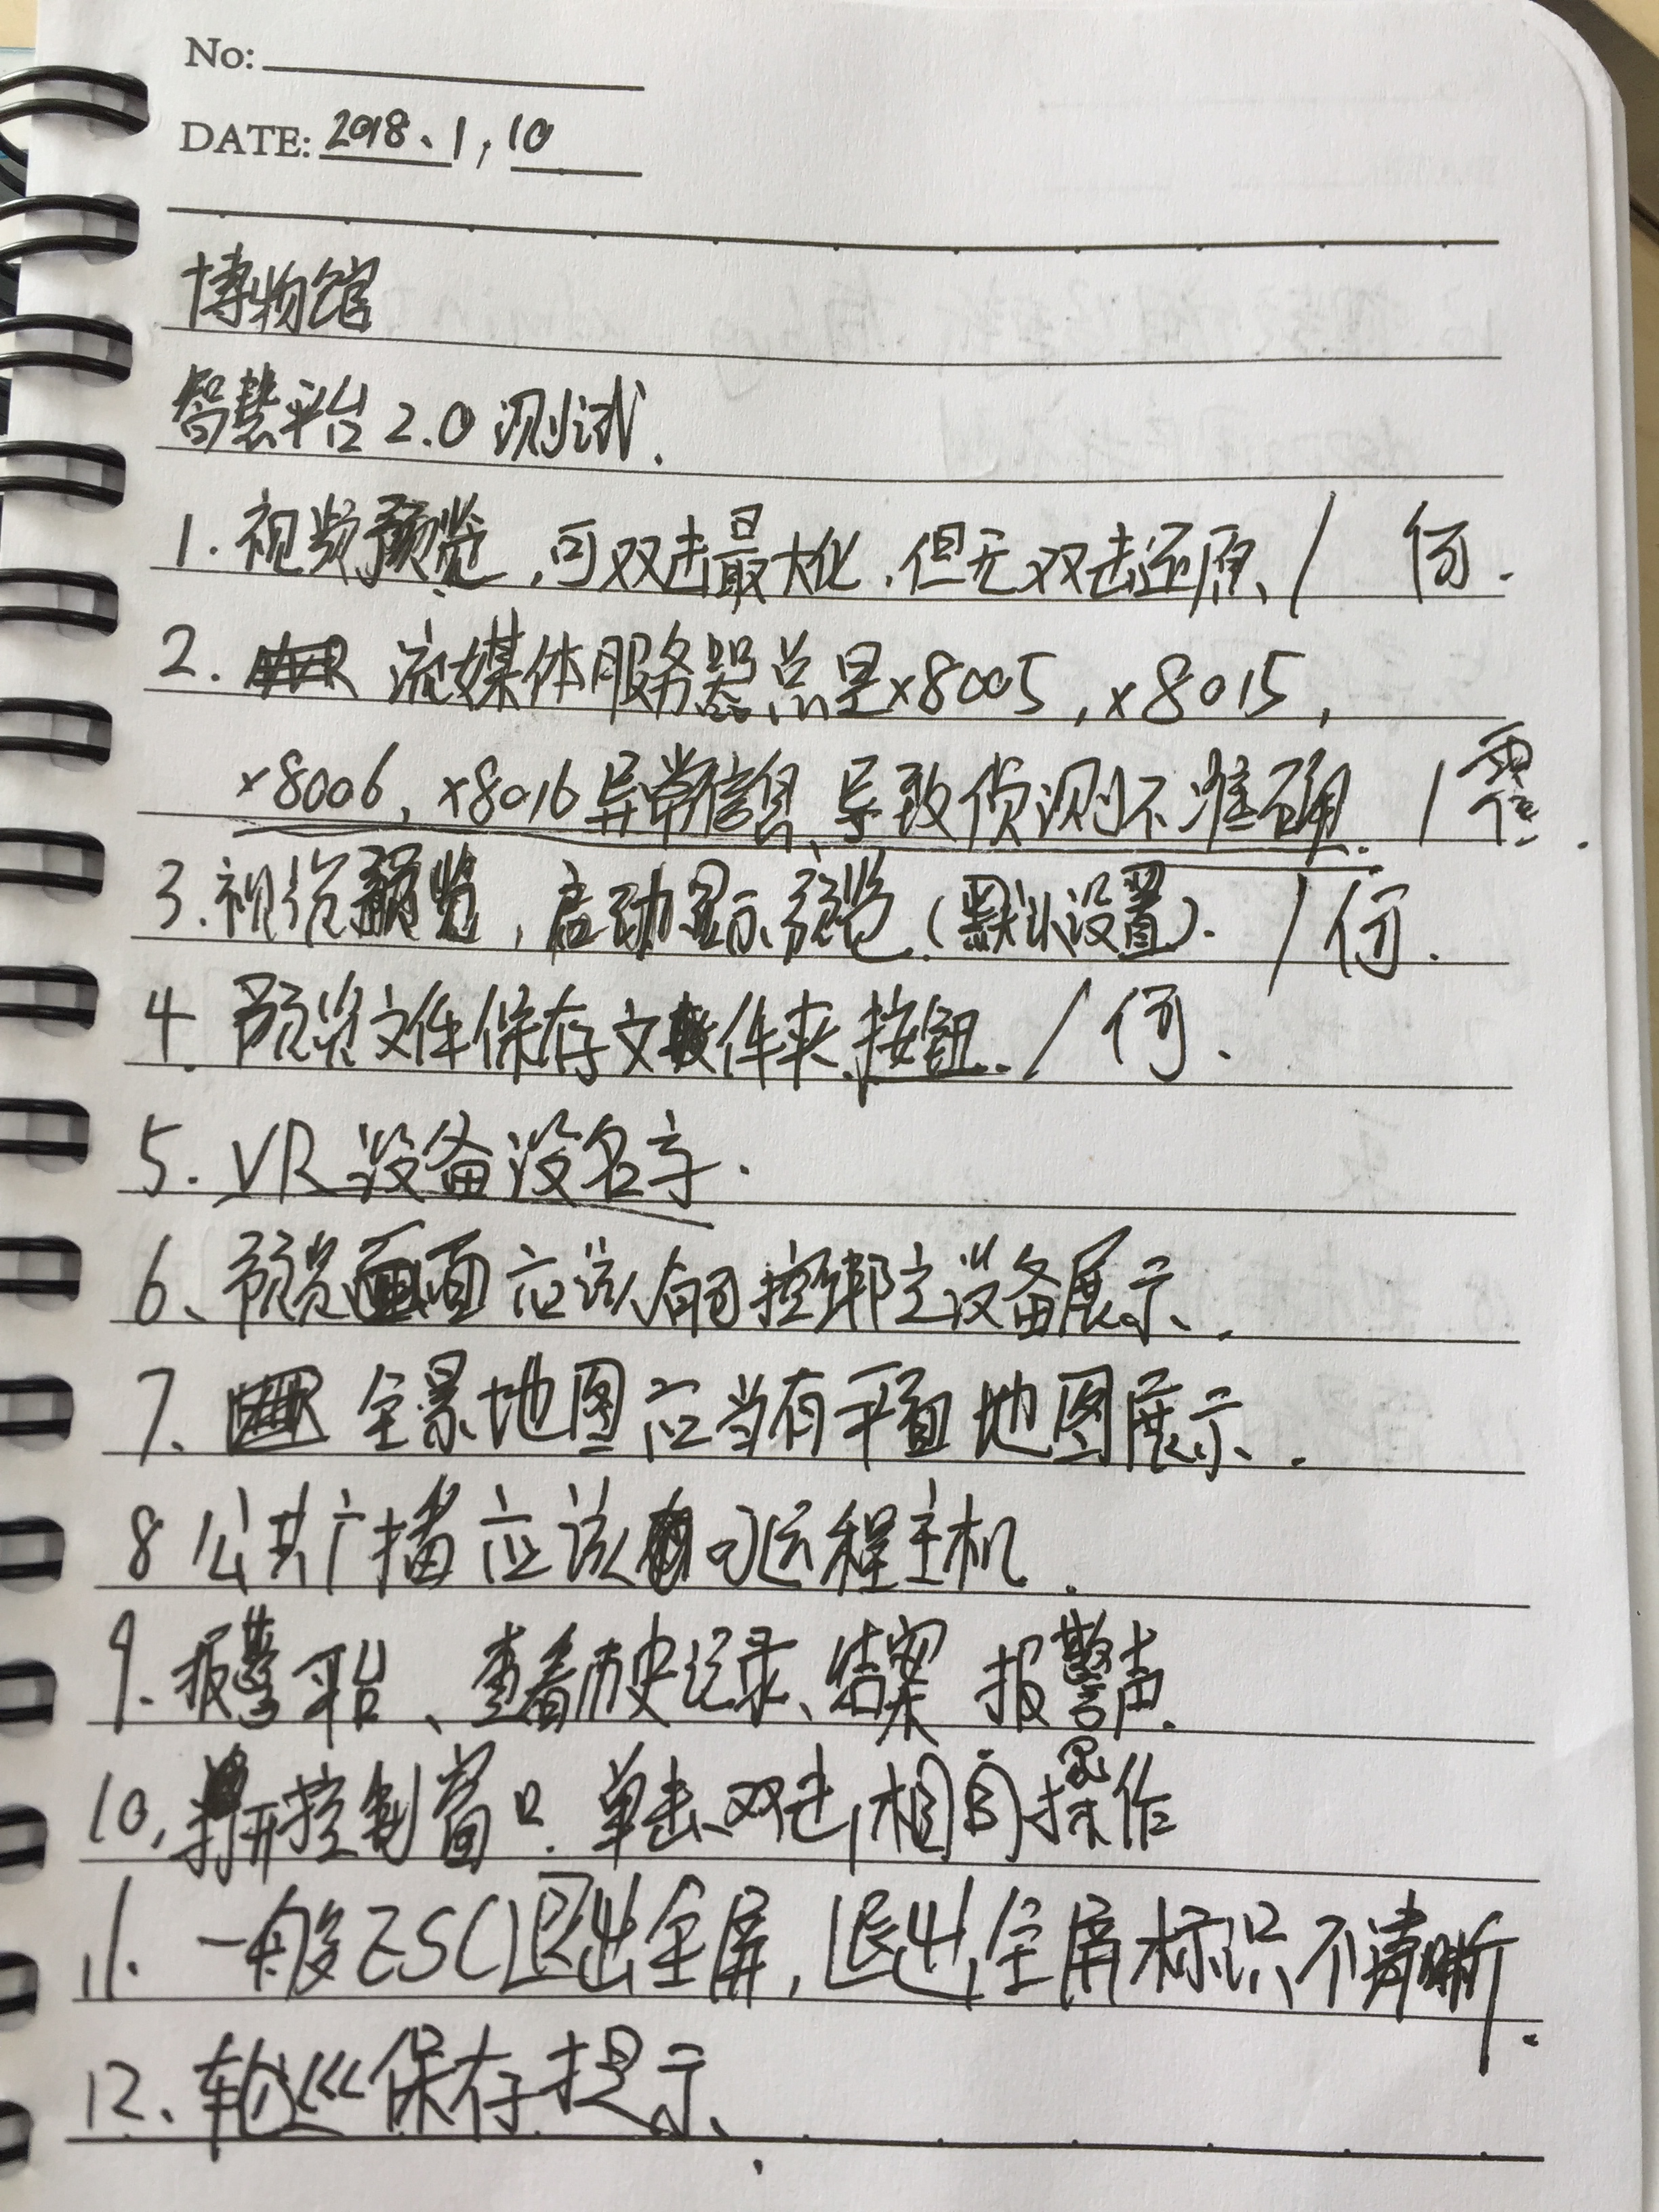 No:
DATE: 2018、1，10
博物馆
智慧平台 2.0 测试.
1. 视频预览，可双击最大化.但无双击还原、/ 何.
2. 流媒体服务器总是×8005，×8015，
×8006，×8016异常信息、导致侦测不准确. /覃.
3. 视频预览，启动显示预览（默认设置）. / 何.
4. 预览文件保存文件夹按钮. / 何.
5. VR 设备没名字.
6、预览画面应该有可控绑定设备展示、.
7、全景地图应当有平面地图展示、.
8 公共广播应该 可远程主机.
9. 报警平台、查看历史记录、结案 报警声.
10，打开控制窗口. 单击、双击，相同操作
11. 一般ESC退出全屏，退出全屏标识不清晰.
12、轮巡保存提示、